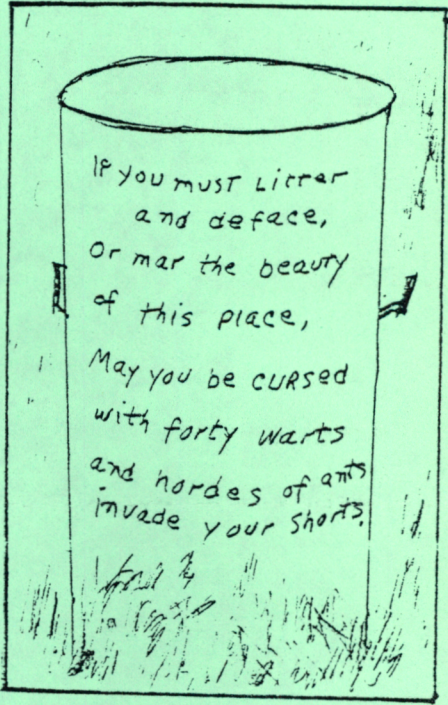 If you must Litter
and deface,
Or mar the beauty
of this place,
May you be cursed
with forty warts
and hordes of ants
invade your shorts.